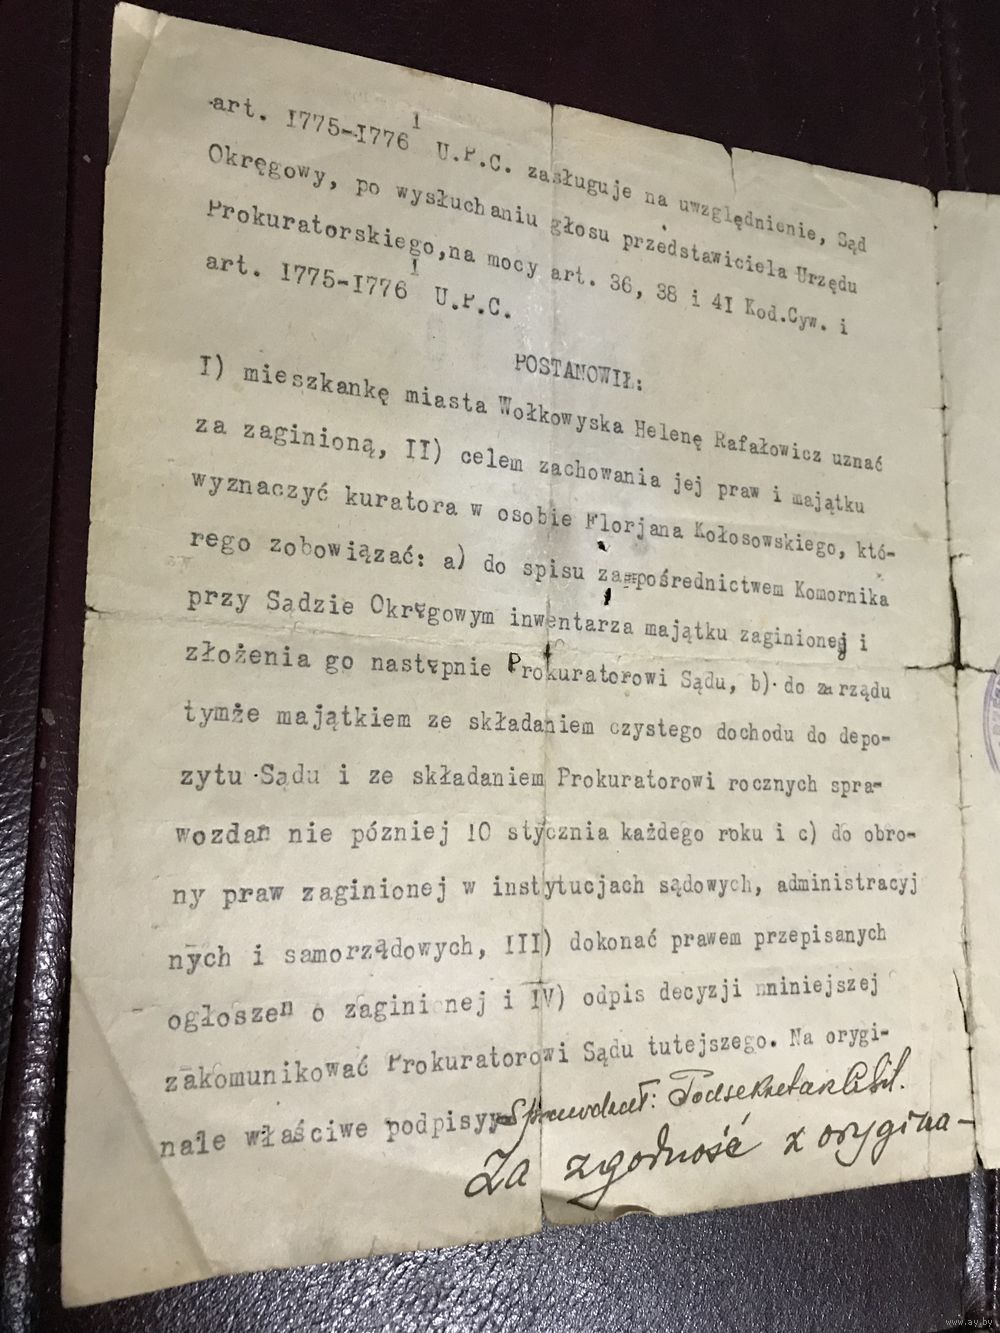 art. I775-I776¹ U.P.C. zasługuje na uwzględnienie, Sąd
Okręgowy, po wysłuchaniu głosu przedstawiciela Urzędu
Prokuratorskiego,na mocy art. 36, 38 i 4I Kod.Cyw. i
art. I775-I776¹ U.P.C.
POSTANOWIŁ:
I) mieszkankę miasta Wołkowyska Helenę Rafałowicz uznać
za zaginioną, II) celem zachowania jej praw i majątku
wyznaczyć kuratora w osobie Florjana Kołosowskiego, któ-
rego zobowiązać: a) do spisu za pośrednictwem Komornika
przy Sądzie Okręgowym inwentarza majątku zaginionej i
złożenia go następnie Prokuratorowi Sądu, b) do zarządu
tymże majątkiem ze składaniem czystego dochodu do depo-
zytu Sądu i ze składaniem Prokuratorowi rocznych spra-
wozdań nie później 10 stycznia każdego roku i c) do obro-
ny praw zaginionej w instytucjach sądowych, administracyj
nych i samorządowych, III) dokonać prawem przepisanych
ogłoszeń o zaginionej i IV) odpis decyzji nniniejszej
zakomunikować Prokuratorowi Sądu tutejszego. Na orygi-
nale właściwe podpisy
Sprawdził: Podsekretarz
Za zgodność z orygina-
www.ay.by